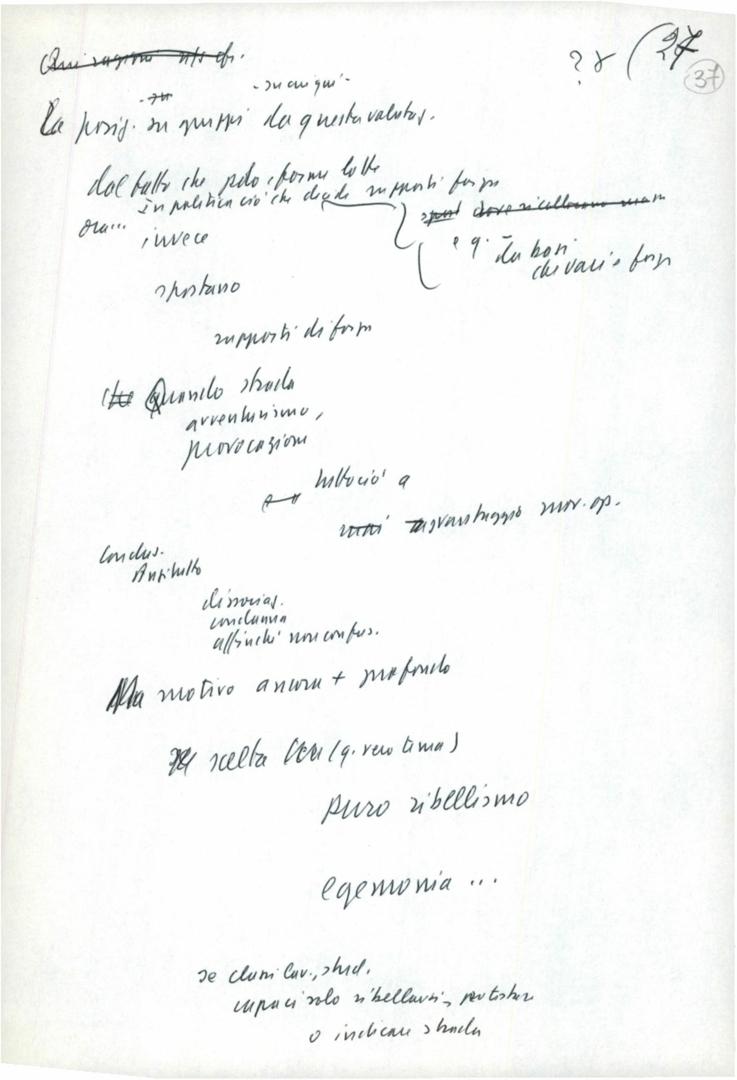 ? 8 ( 27
37
- su cui qui -
La posiz. su gruppi da questa valutaz.
dal fatto che solo forme lotte
in politica ciò che decide rapporti forza
ora...
invece
e q. da basi
che vari e forze
spostano
rapporti di forza
Quando strada
avventurismo,
provocazioni
tuttociò a
svantaggio mov. op.
Conclus.
Anzitutto
dissociaz.
condanna
affinché non confus.
Ma motivo ancora + profondo
scelta (q. vero tema)
puro ribellismo
egemonia ...
se classi lav., stud.
capaci solo ribellarsi, protestare
o indicare strada